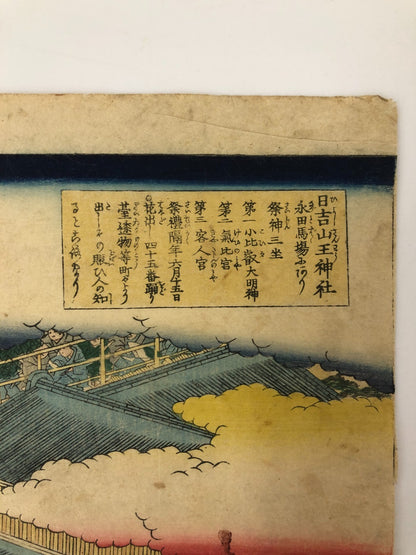 日吉山王神社
永田馬場にあり
祭神三坐
第一 小比叡大明神
第二 氣比宮
第三 客人宮
祭禮隔年六月十五日
花出し四十五番踊り
臺造物等町々より
出しその賑ひ人の知
るところ